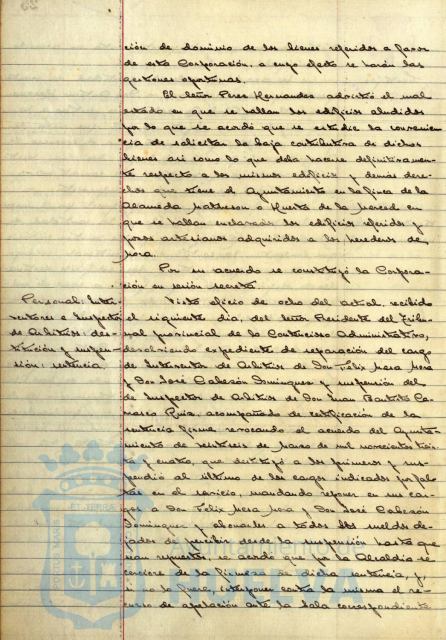 ción de dominio de los bienes referidos a favor
de esta Corporación, a cuyo efecto se harán las
gestiones oportunas.
El Señor Perez Hernandez advirtió el mal
estado en que se hallan los edificios aludidos
por lo que se acordó que se estudie la convenien-
cia de solicitar la baja contributiva de dichos
bienes asi como lo que deba hacerse definitivamen-
te respecto a los mismos edificios y demás dere-
chos que tiene el Ayuntamiento en la finca de la
Alameda Matheson o Huerto de la Merced en
que se hallan enclavados los edificios referidos y
pozos artesianos adquiridos a los herederos de
Mora.
Por su acuerdo se constituyó la Corpora-
ción en sesión secreta.
Personal: Inter-
ventores e Inspector
de Arbitrios: des-
titución y suspen-
sión: sentencia
Visto oficio de ocho del actual, recibido
el siguiente dia, del Señor Presidente del Tribu-
nal provincial de lo Contencioso Administrativo,
devolviendo expediente de separación del cargo
de Interventor de Arbitrios de Don Félix Mesa Mesa
y Don José Cabezón Dominguez y suspensión del
de Inspector de Arbitrios de Don Juan Bautista Ca-
marasa Ruiz, acompañado de certificación de la
sentencia firme revocando el acuerdo del Ayunta-
miento de veintiseis de Marzo de mil novecientos trein-
ta y cuatro, que destituyó a los primeros y sus-
pendió al último de los cargos indicados por fal-
tas en el servicio, mandando reponer en sus car-
gos a Don Félix Mesa Mesa y Don José Cabezón
Dominguez y abonarles a todos los sueldos de-
jados de percibir desde la suspensión hasta que
sean repuestos, se acordó que por la Alcaldia se
cerciore de la firmeza de dicha sentencia, y
si no lo fuere, interponer contra la misma el re-
curso de apelación ante la Sala correspondiente